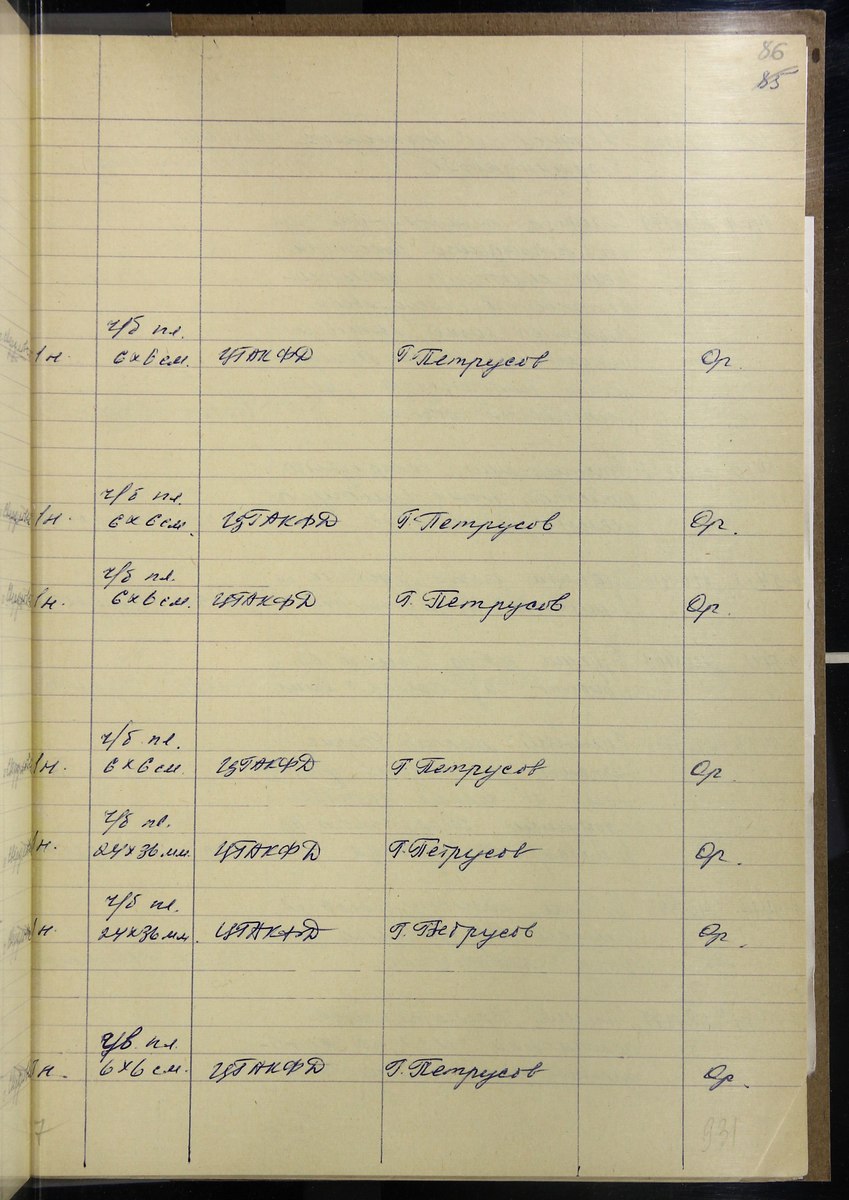 86
85
ч/б пл.
1 н. 6х6 см. ЦГАКФД Г. Петрусов Ор.
ч/б пл.
1 н. 6х6 см. ЦГАКФД Г. Петрусов Ор.
ч/б пл.
1 н. 6х6 см. ЦГАКФД Г. Петрусов Ор.
ч/б пл.
1 н. 6х6 см. ЦГАКФД Г. Петрусов Ор.
ч/б пл.
1 н. 24х36 мм. ЦГАКФД Г. Петрусов Ор.
ч/б пл.
1 н. 24х36 мм. ЦГАКФД Г. Петрусов Ор.
цв. пл.
н. 6х6 см. ЦГАКФД Г. Петрусов Ор.
7 931